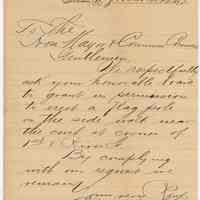 To The
Hon Mayor & Common Council
Gentlemen
We respectfully
ask your honorable
to grant us permission
to erect a flag pole
on the side walk near
the curb at corner of
1st &
By complying
with our request we
remain
Your